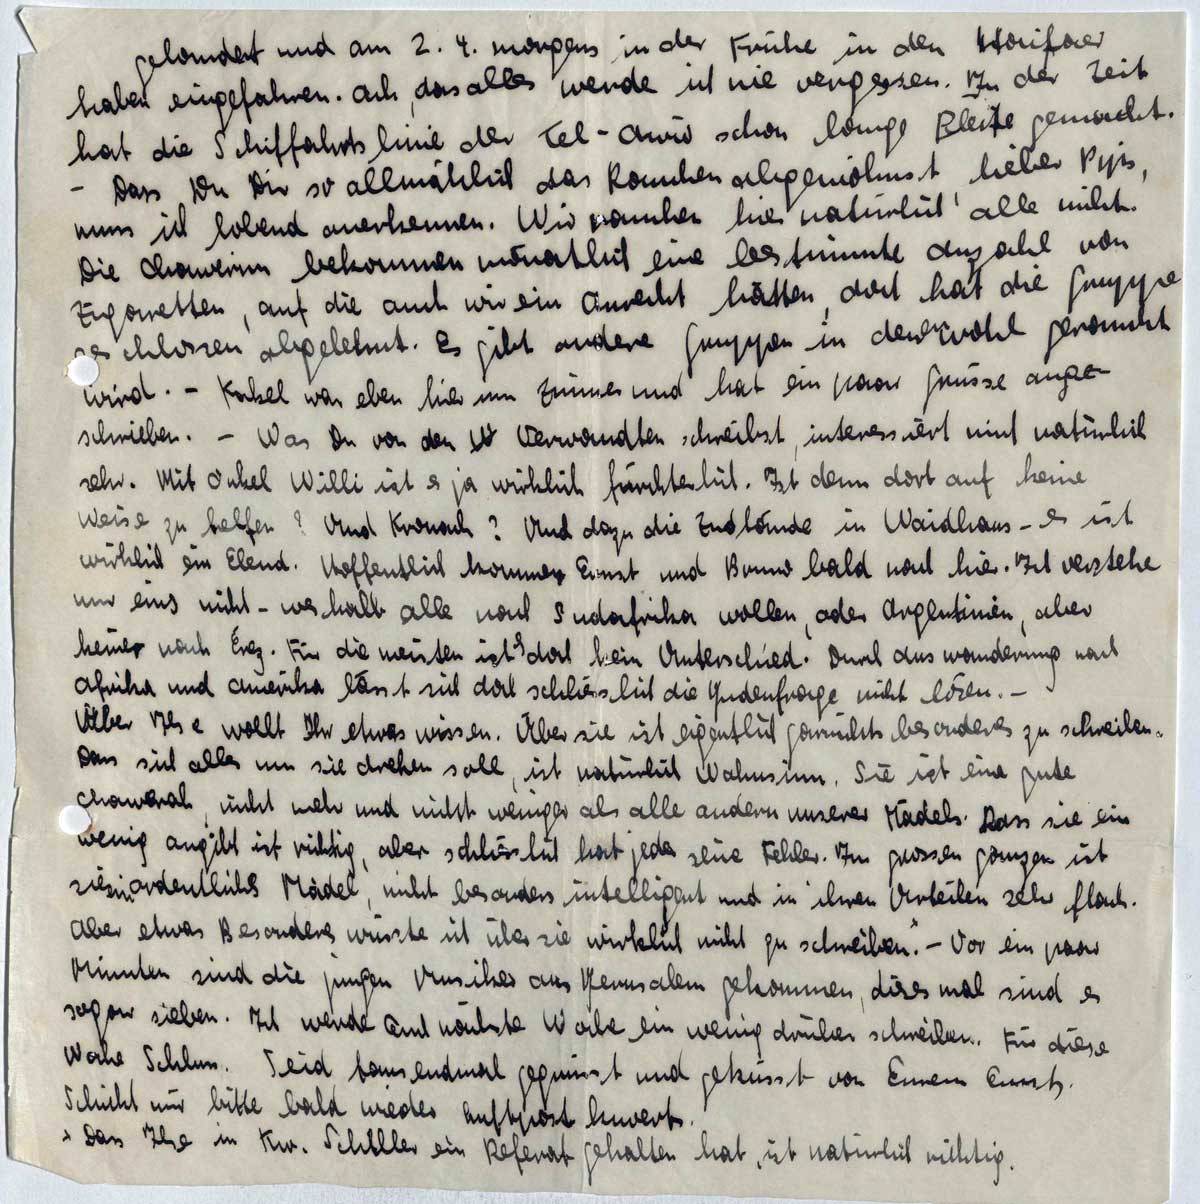 gelandet und am 2. 4. morgens in der Frühe in den Haifaer
haben eingefahren. Ach, das alles werde ich nie vergessen. In der Zeit
hat die Schiffahrtslinie der Tel-Awiw schon lange Pleite gemacht.
- Dass Du Dir so allmählich das Rauchen abgewöhnst, lieber Papis,
muss ich lobend anerkennen. Wir rauchen hier natürlich alle nicht.
Die Chawerim bekommen monatlich eine bestimmte Anzahl von
Zigaretten, auf die auch wir ein Anrecht hätten, doch hat die Gruppe
geschlossen abgelehnt. Es gibt andere Gruppen in denen wohl geraucht
wird. - war eben hier im Zimmer und hat ein paar Grüsse ange-
schrieben. - Was Du von den Verwandten schreibst, interessiert mich natürlich
sehr. Mit Onkel Willi ist es ja wirklich fürchterlich. Ist denn dort auf keine
Weise zu helfen? Und Kronach? Und dazu die Zustände in Waidhaus - es ist
wirklich ein Elend. Hoffentlich kommen Ernst und Bruno bald nach hier. Ich verstehe
nur eins nicht - weshalb alle nach Südafrika wollen, oder Argentinien, aber
keiner nach Erez. Für die meisten ist's doch kein Unterschied. Durch Auswanderung nach
Afrika und Amerika lässt sich doch schliesslich die Judenfrage nicht lösen. -
Über Ilse wollt Ihr etwas wissen. Über sie ist eigentlich garnichts besonderes zu schreiben.
Dass sich alles um sie drehen soll, ist natürlich Wahnsinn. Sie ist eine gute
Chawerah, nicht mehr und nicht weniger als alle andern unserer Mädels. Dass sie ein
wenig angibt ist richtig, aber schliesslich hat jeder seine Fehler. Im grossen ganzen ist
sie ein ordentliches Mädel, nicht besonders intelligent und in ihren Urteilen sehr flach.
Aber etwas Besonderes wüsste ich über sie wirklich nicht zu schreiben.ˣ - Vor ein paar
Minuten sind die jungen Musiker aus Jerusalem gekommen, dieses mal sind es
sogar sieben. Ich werde Euch nächste Woche ein wenig drüber schreiben. Für diese
Woche Schluss. Seid tausendmal gegrüsst und geküsst von Eurem Ernst.
Schickt mir bitte bald wieder Luftpostkuverts.
x Dass Ilse in Kw. Schiller ein Referat gehalten hat, ist natürlich richtig.